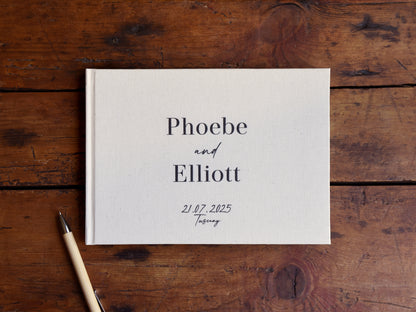 Phoebe
and
Elliott
21.07.2025
Tuscany